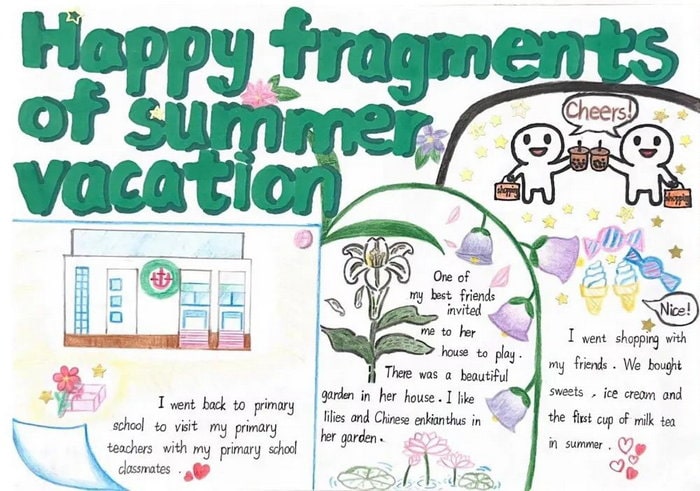 Happy fragments
of summer
vacation
Cheers!
shopping
shopping
I went back to primary
school to visit my primary
teachers with my primary school
classmates .
One of
my best friends
invited
me to her
house to play.
There was a beautiful
garden in her house. I like
lilies and Chinese enkianthus in
her garden.
Nice!
I went shopping with
my friends. We bought
sweets , ice cream and
the first cup of milk tea
in summer.